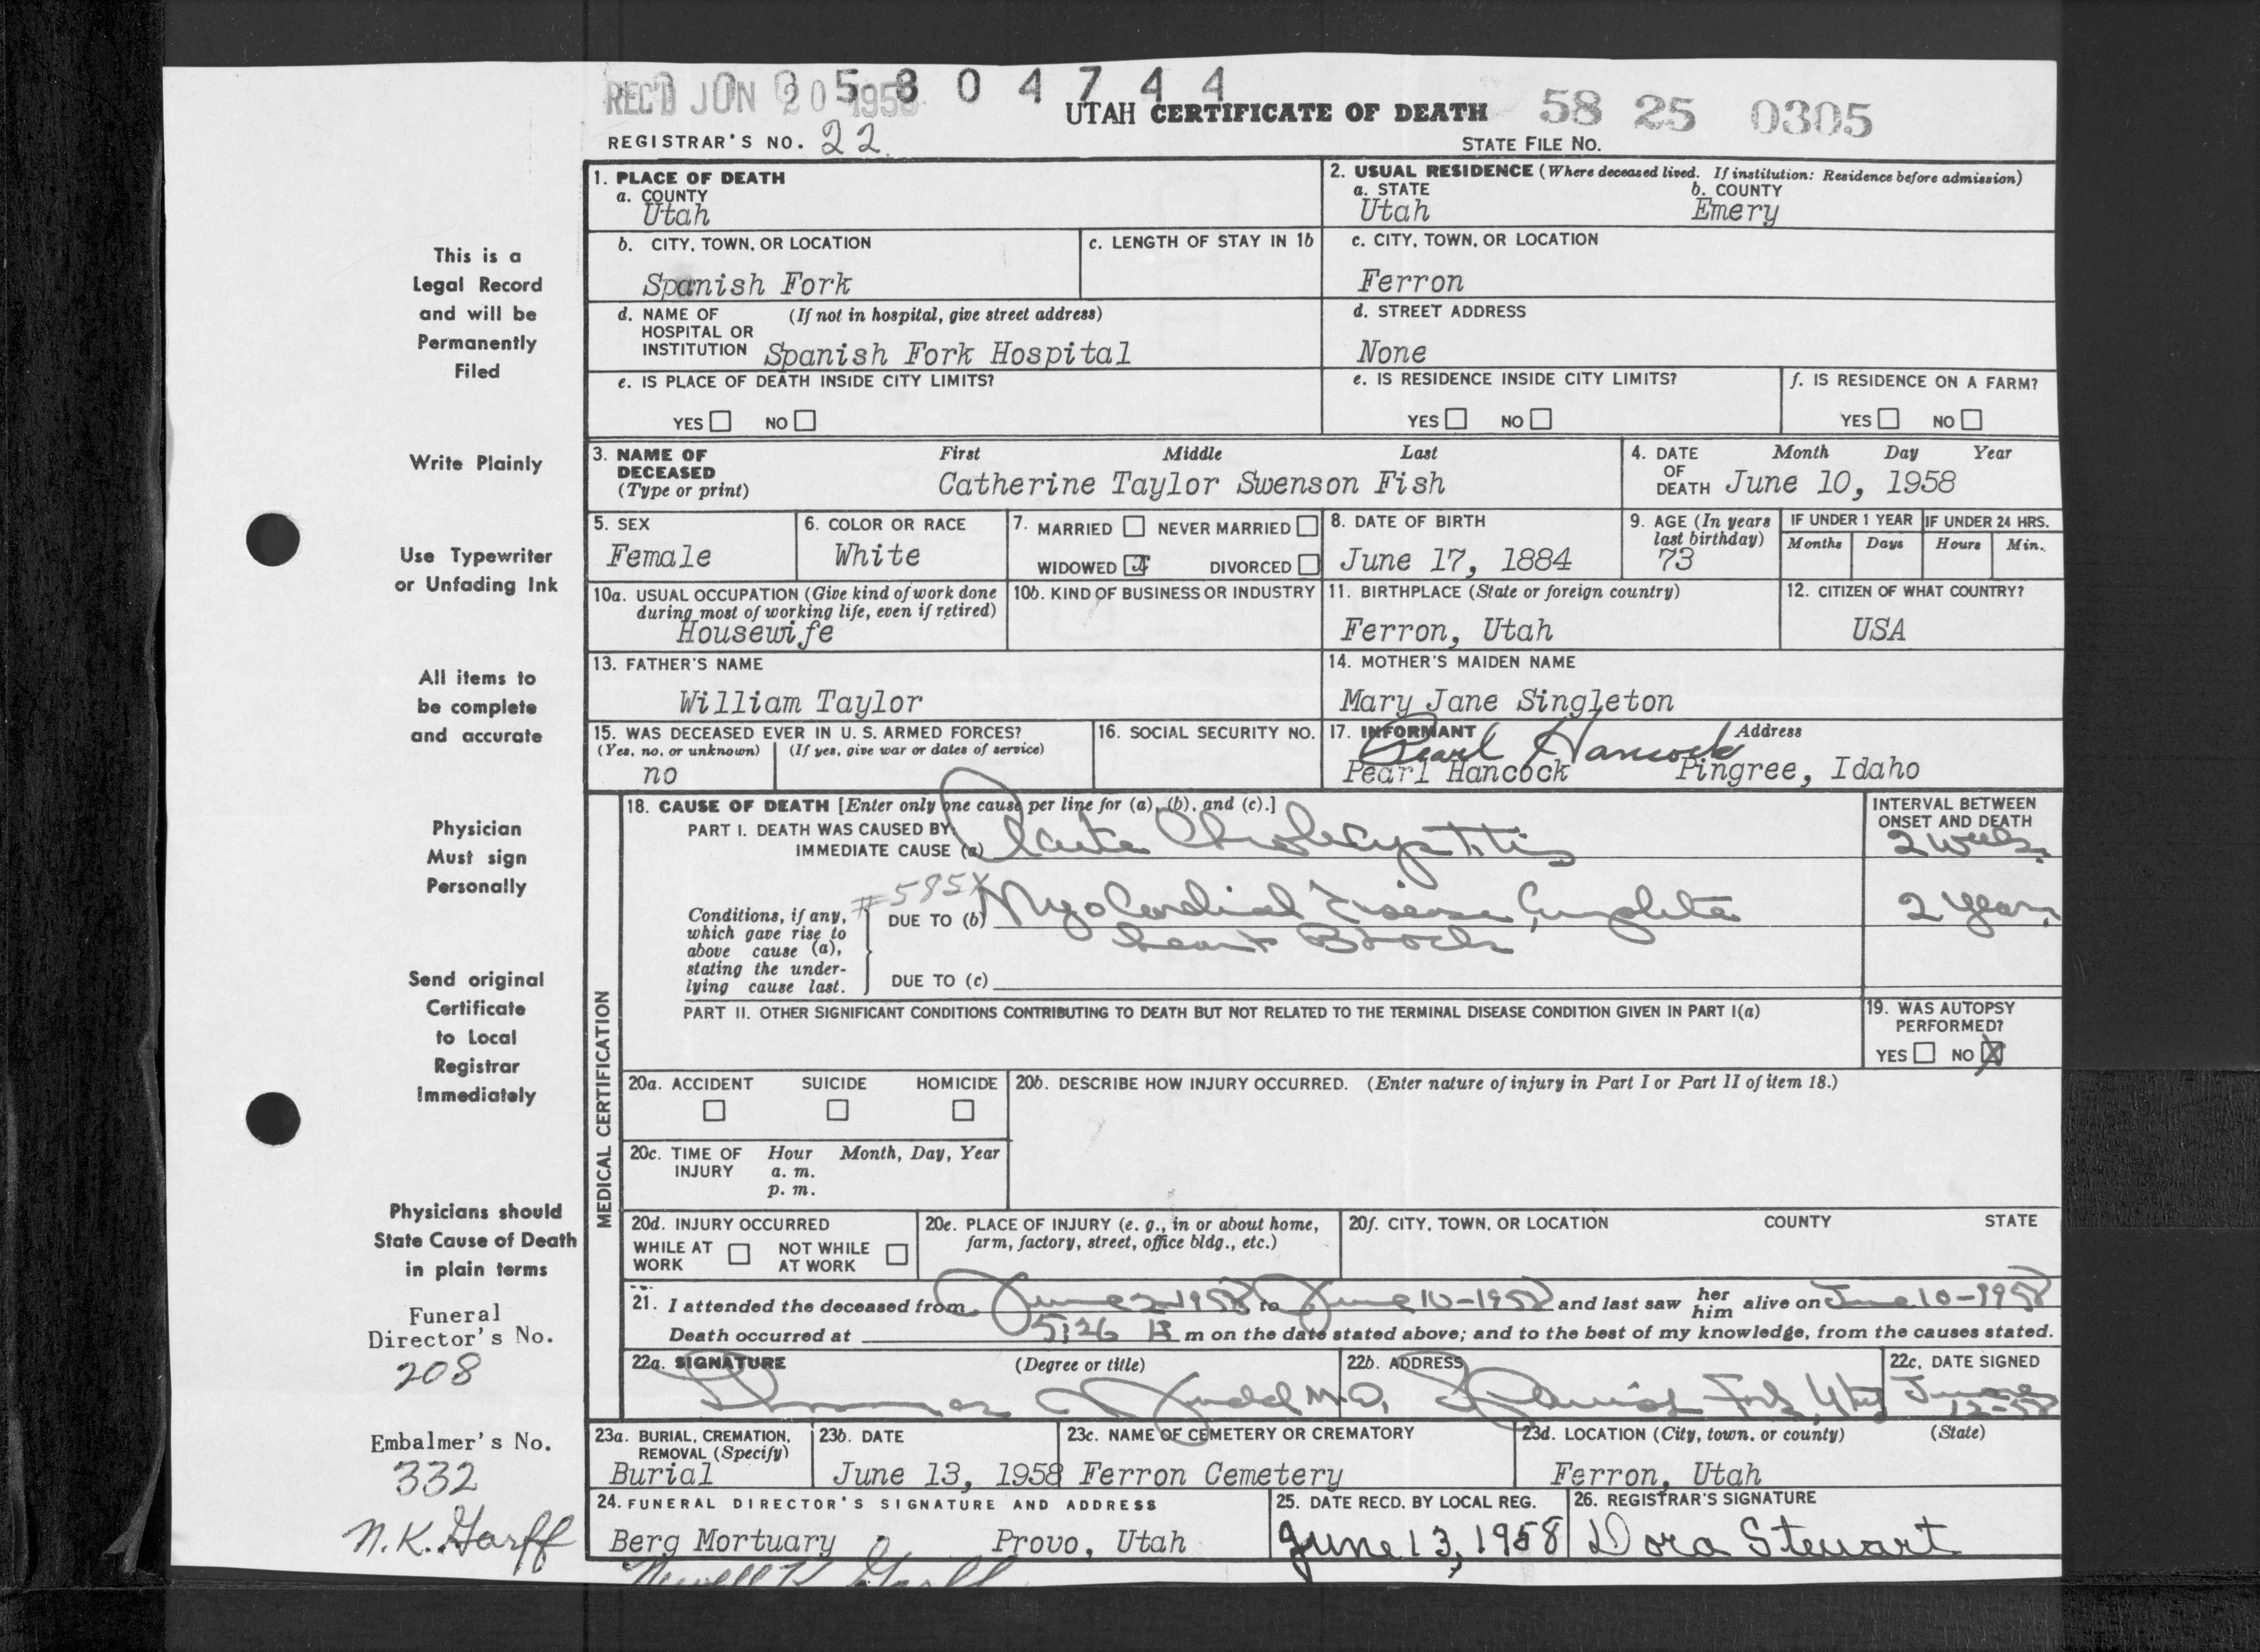 REC'D JUN 20 1958
5 8 0 4 7 4 4
UTAH CERTIFICATE OF DEATH
58 25 0305
REGISTRAR'S NO. 22
STATE FILE NO.
1. PLACE OF DEATH
a. COUNTY
Utah
2. USUAL RESIDENCE (Where deceased lived. If institution: Residence before admission)
a. STATE b. COUNTY
Utah Emery
b. CITY, TOWN, OR LOCATION
Spanish Fork
c. LENGTH OF STAY IN 1b
c. CITY, TOWN, OR LOCATION
Ferron
d. NAME OF (If not in hospital, give street address)
HOSPITAL OR
INSTITUTION Spanish Fork Hospital
d. STREET ADDRESS
None
e. IS PLACE OF DEATH INSIDE CITY LIMITS?
YES NO
e. IS RESIDENCE INSIDE CITY LIMITS?
YES NO
f. IS RESIDENCE ON A FARM?
YES NO
3. NAME OF First Middle Last
DECEASED
(Type or print) Catherine Taylor Swenson Fish
4. DATE Month Day Year
OF
DEATH June 10, 1958
5. SEX
Female
6. COLOR OR RACE
White
7. MARRIED NEVER MARRIED
WIDOWED X DIVORCED
8. DATE OF BIRTH
June 17, 1884
9. AGE (In years
last birthday)
73
IF UNDER 1 YEAR
Months Days
IF UNDER 24 HRS.
Hours Min.
10a. USUAL OCCUPATION (Give kind of work done
during most of working life, even if retired)
Housewife
10b. KIND OF BUSINESS OR INDUSTRY
11. BIRTHPLACE (State or foreign country)
Ferron, Utah
12. CITIZEN OF WHAT COUNTRY?
USA
13. FATHER'S NAME
William Taylor
14. MOTHER'S MAIDEN NAME
Mary Jane Singleton
15. WAS DECEASED EVER IN U. S. ARMED FORCES?
(Yes, no, or unknown) (If yes, give war or dates of service)
no
16. SOCIAL SECURITY NO.
17. INFORMANT Address
Pearl Hancock
Pearl Hancock Pingree, Idaho
MEDICAL CERTIFICATION
18. CAUSE OF DEATH [Enter only one cause per line for (a), (b), and (c).]
PART I. DEATH WAS CAUSED BY:
IMMEDIATE CAUSE (a) Acute Cholecystitis
INTERVAL BETWEEN
ONSET AND DEATH
2 weeks
#585X
Conditions, if any,
which gave rise to
above cause (a),
stating the under-
lying cause last.
DUE TO (b) Myocardial Disease, Complete
heart Block
2 years
DUE TO (c)
PART II. OTHER SIGNIFICANT CONDITIONS CONTRIBUTING TO DEATH BUT NOT RELATED TO THE TERMINAL DISEASE CONDITION GIVEN IN PART I(a)
19. WAS AUTOPSY
PERFORMED?
YES NO X
20a. ACCIDENT SUICIDE HOMICIDE
20b. DESCRIBE HOW INJURY OCCURRED. (Enter nature of injury in Part I or Part II of item 18.)
20c. TIME OF Hour Month, Day, Year
INJURY a. m.
p. m.
20d. INJURY OCCURRED
WHILE AT NOT WHILE
WORK AT WORK
20e. PLACE OF INJURY (e. g., in or about home,
farm, factory, street, office bldg., etc.)
20f. CITY, TOWN, OR LOCATION COUNTY STATE
21. I attended the deceased from June 2-1958 to June 10-1958 and last saw her him alive on June 10-1958
Death occurred at 5:26 m on the date stated above; and to the best of my knowledge, from the causes stated.
22a. SIGNATURE (Degree or title)
Judd M.D.
22b. ADDRESS
Spanish Fork, Utah
22c. DATE SIGNED
June
12-58
23a. BURIAL, CREMATION,
REMOVAL (Specify)
Burial
23b. DATE
June 13, 1958
23c. NAME OF CEMETERY OR CREMATORY
Ferron Cemetery
23d. LOCATION (City, town, or county) (State)
Ferron, Utah
24. FUNERAL DIRECTOR'S SIGNATURE AND ADDRESS
Berg Mortuary Provo, Utah
Newell K. Garff
25. DATE RECD. BY LOCAL REG.
June 13, 1958
26. REGISTRAR'S SIGNATURE
Dora Stewart
This is a
Legal Record
and will be
Permanently
Filed
Write Plainly
Use Typewriter
or Unfading Ink
All items to
be complete
and accurate
Physician
Must sign
Personally
Send original
Certificate
to Local
Registrar
Immediately
Physicians should
State Cause of Death
in plain terms
Funeral
Director's No.
208
Embalmer's No.
332
N.K. Garff